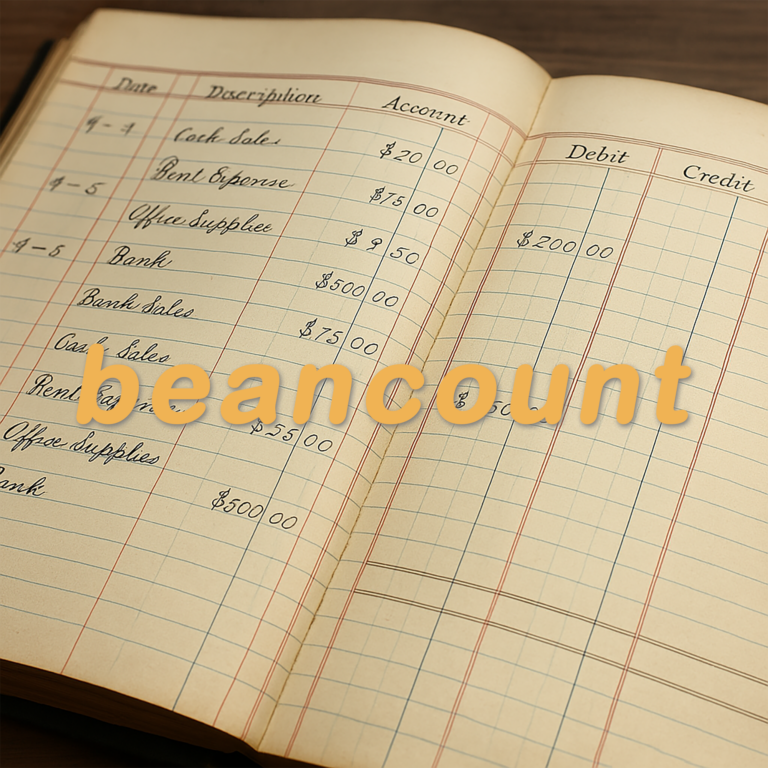 Date Description Account Debit Credit
4-4 Cash Sales $20 00
Rent Expense $75 00
4-5 Office Supplies $9 50 $200 00
4-5 Bank $500 00
Bank Sales $75 00
Cash Sales
beancount
Rent $55 00
Office Supplies
$500 00